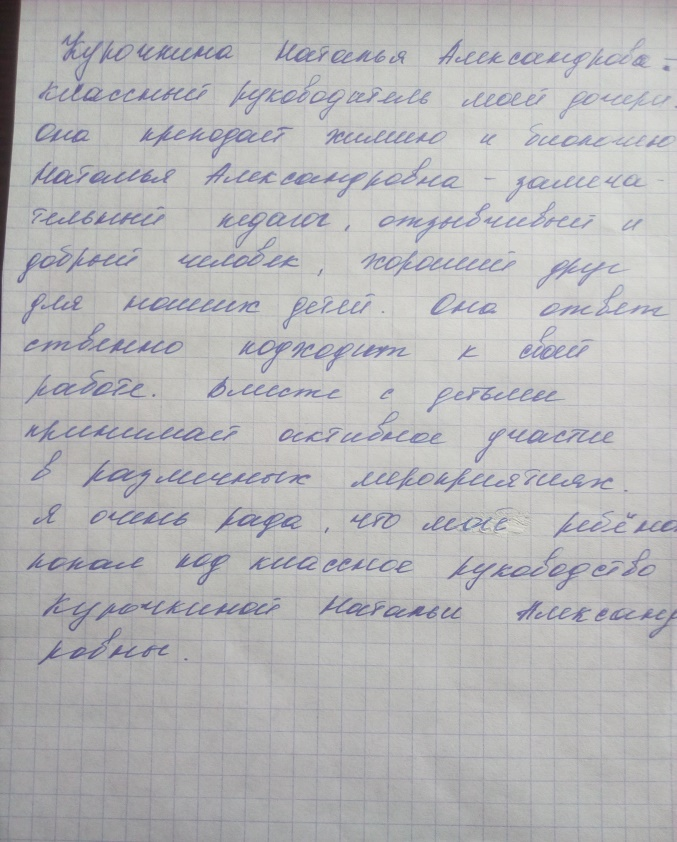 Курочкина Наталья Александрова-
классный руководитель моей дочери.
Она преподает химию и биологию
Наталья Александровна - замеча-
тельный педагог, отзывчивый и
добрый человек, хороший друг
для наших детей. Она ответ
ственно подходит к своей
работе. Вместе с детьми
принимает активное участие
в различных мероприятиях.
Я очень рада, что мой ребёно
попал под классное руководство
Курочкиной Натальи Александ
ровны.